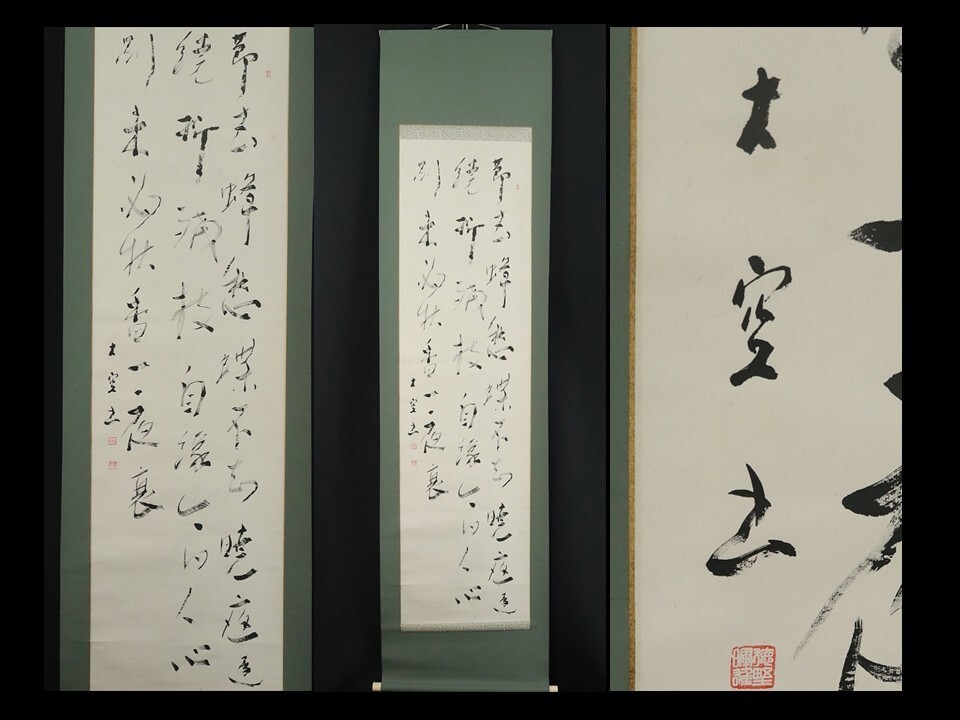 節去蜂愁蝶不知曉庭還
繞折殘枝自縁今日人心
別未必秋香一夜衰
大空書
節去蜂愁蝶不知曉庭還
繞折殘枝自縁今日人心
別未必秋香一夜衰
大空書
大空書